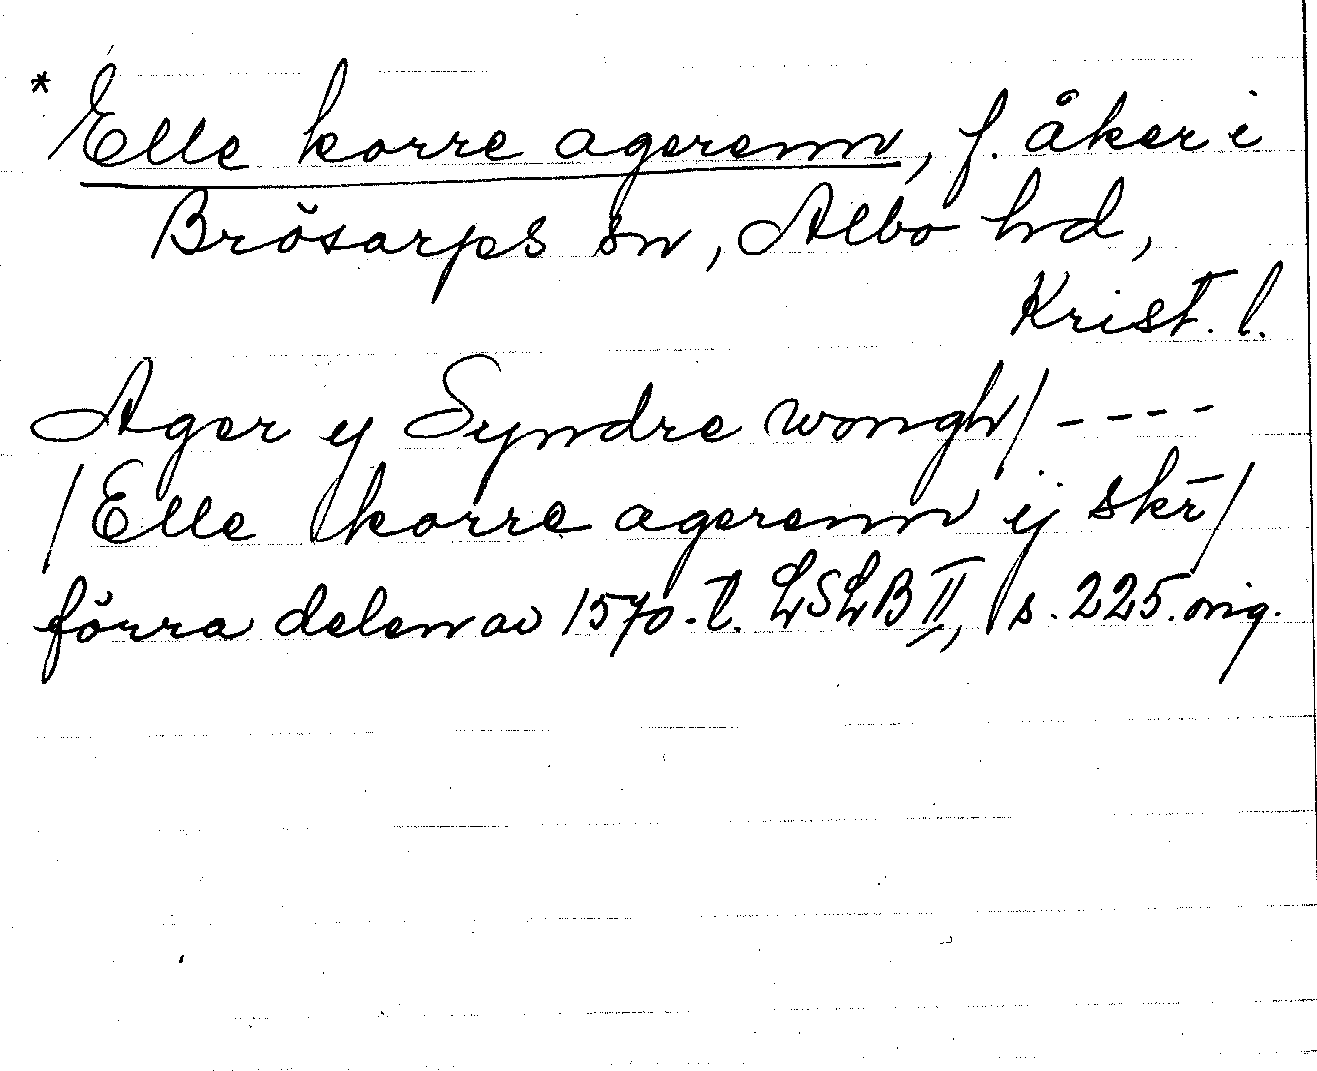 * Elle korre agerenn, f. åker i
Brösarps sn, Albo hd,
Krist. l.
Ager y Syndre wongh/ ----
/Elle korre agerenn ij skr̄/
förra delen av 1570-t. LSLB II, s. 225. orig.